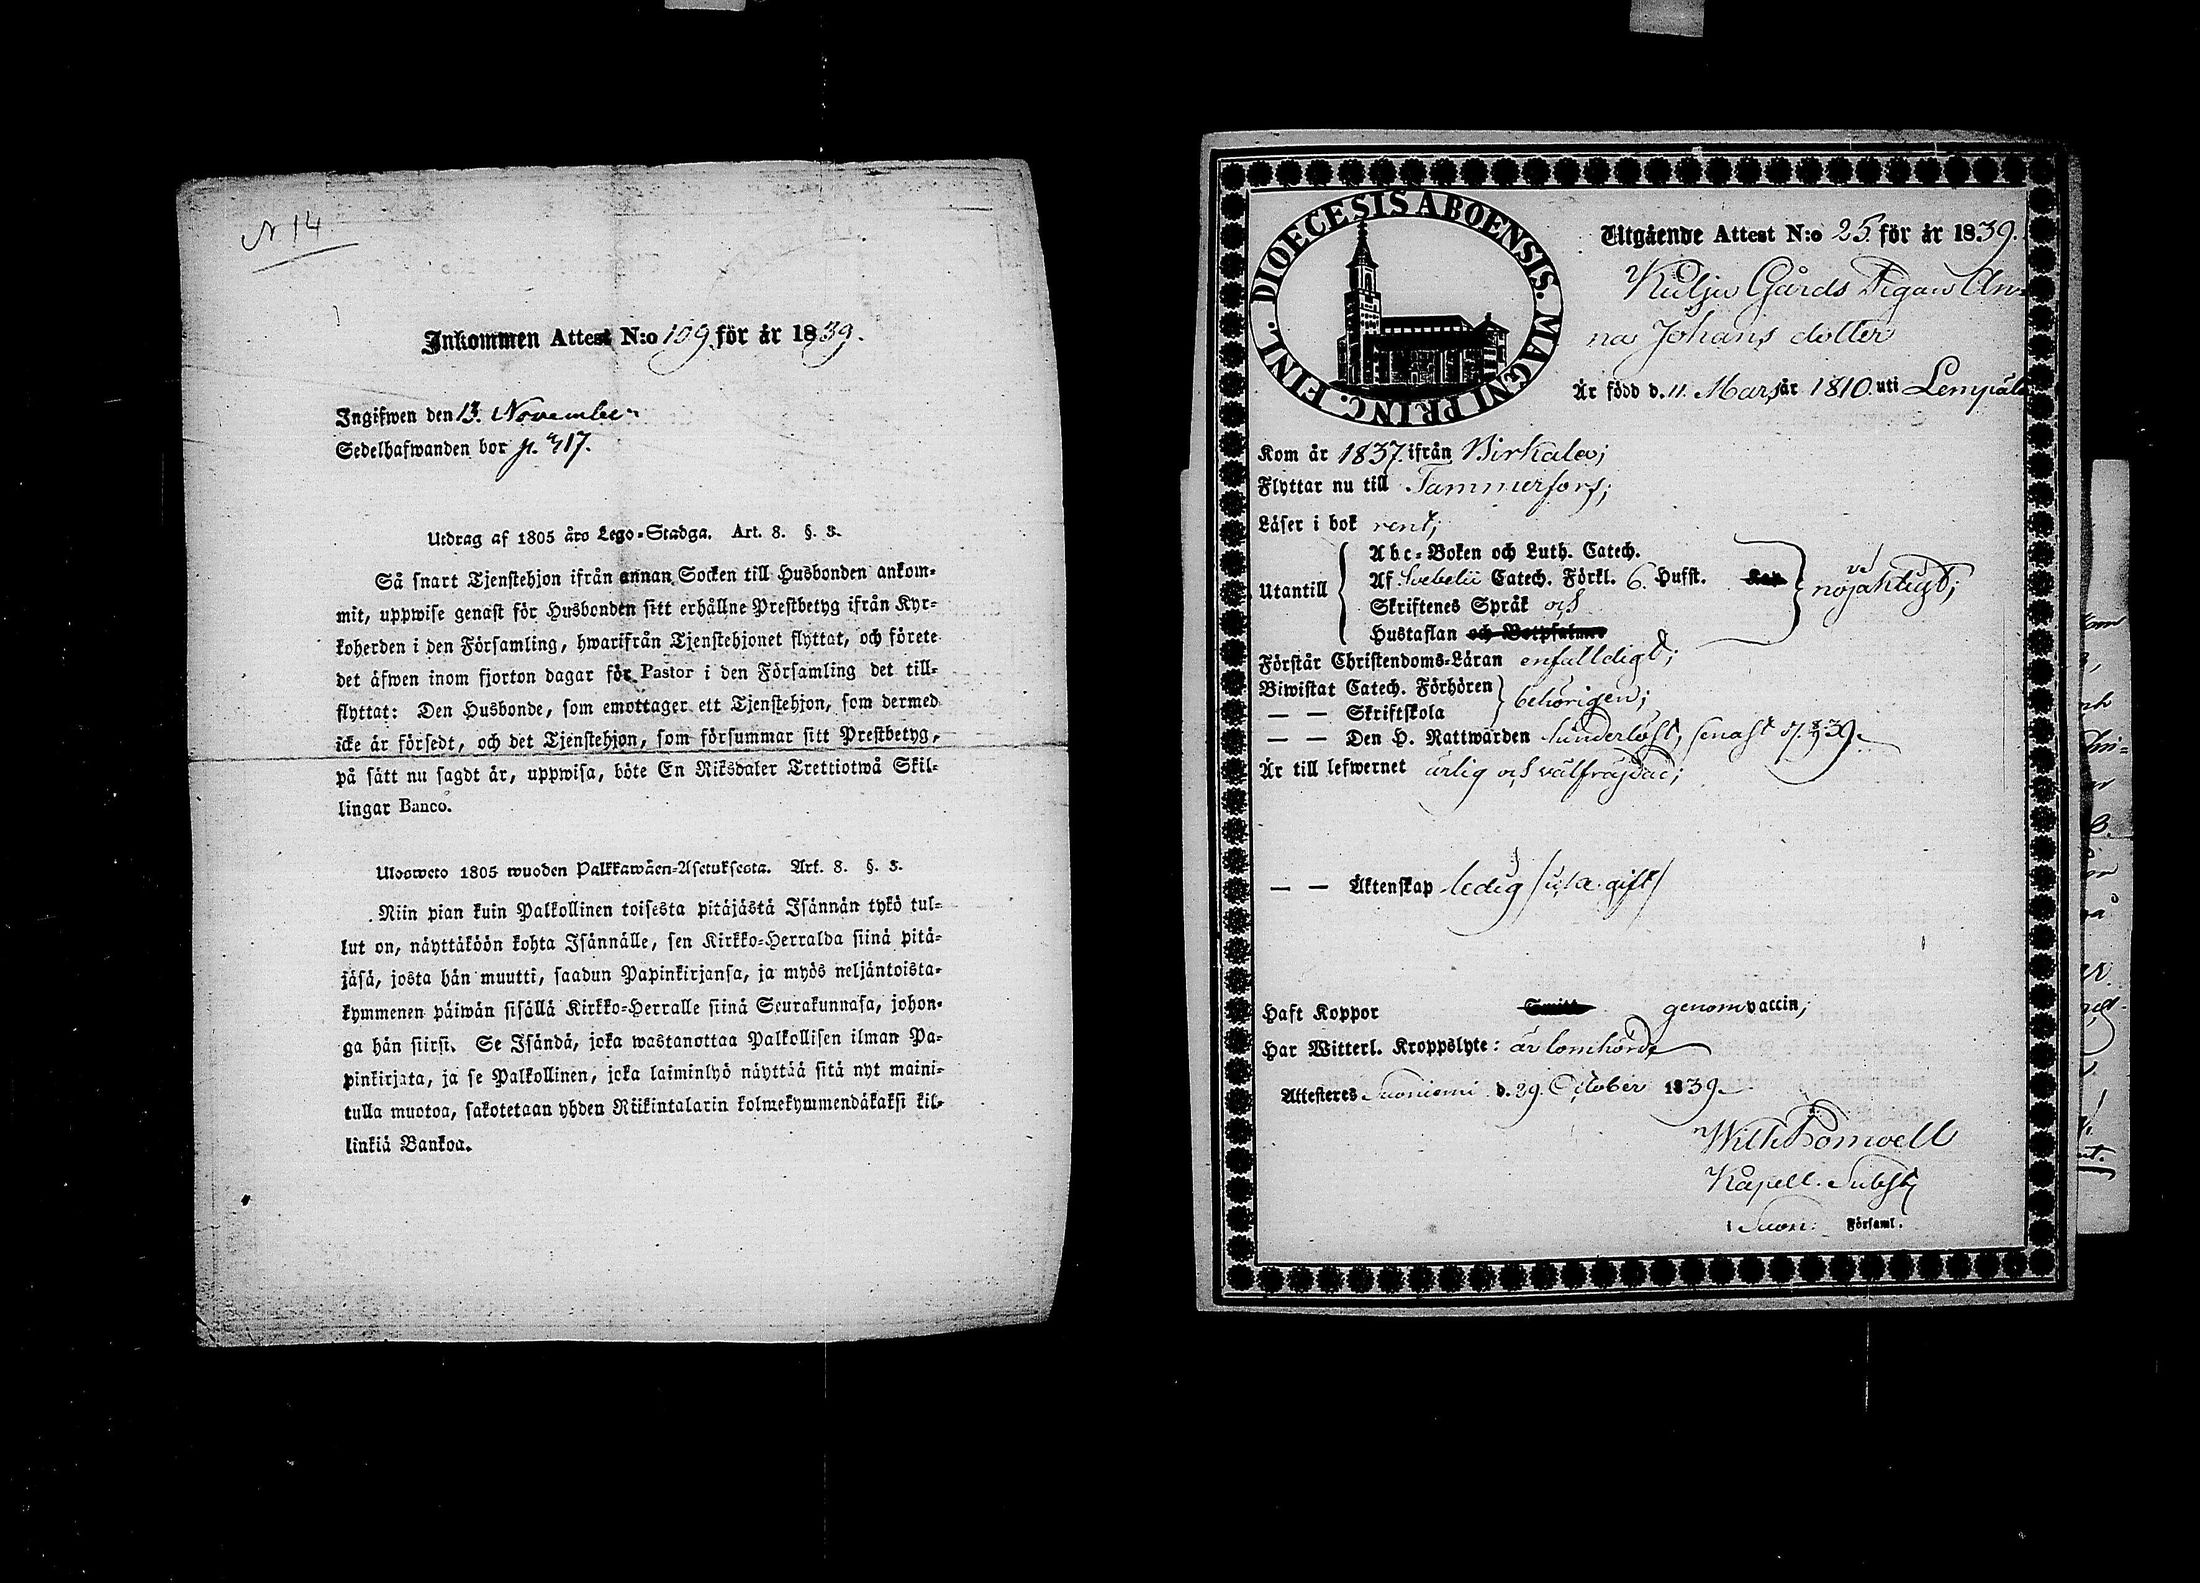 N 14
Inkommen Attest N:o 109 för år 1839.
Ingifwen den 13. November
Sedelhafwanden bor p. 417.
Utdrag af 1805 års Lego-Stadga. Art. 8. §. 3.
Så snart Tjenstehjon ifrån annan Socken till Husbonden ankom-
mit, uppwise genast för Husbonden sitt erhållne Prestbetyg ifrån Kyr-
koherden i den Församling, hwarifrån Tjenstehjonet flyttat, och förete
det äfwen inom fjorton dagar för Pastor i den Församling det till-
flyttat: Den Husbonde, som emottager ett Tjenstehjon, som dermed
icke är försedt, och det Tjenstehjon, som försummar sitt Prestbetyg,
på sätt nu sagdt är, uppwisa, böte En Riksdaler Trettiotwå Skil-
lingar Banco.
Ulosweto 1805 wuoden Palkkawäen-Asetuksesta. Art. 8. §. 3.
Niin pian kuin Palkollinen toisesta pitäjästä Isännän tykö tul-
lut on, näyttäköön kohta Isännälle, sen Kirkko-Herralda siinä pitä-
jäsä, josta hän muutti, saadun Papinkirjansa, ja myös neljäntoista-
kymmenen päiwän sisällä Kirkko-Herralle siinä Seurakunnasa, johon-
ga hän siirsi. Se Isändä, joka wastanottaa Palkollisen ilman Pa-
pinkirjata, ja se Palkollinen, joka laiminlyö näyttää sitä nyt maini-
tulla muotoa, sakotetaan yhden Riikintalarin kolmekymmendäkaksi kil-
linkiä Bankoa.
DIOECESIS ABOENSIS. MAGNI PRINC. FINL.
Utgående Attest N:o 25. för år 1839.
Kulju Gårds Pigan An-
na Johans dotter
Är född d. 11. Mars år 1810. uti Lempälä
Kom år 1837. ifrån Birkala;
Flyttar nu till Tammerfors;
Läser i bok rent;
Utantill
Abc-Boken och Luth. Catech.
Af Svebelii Catech. Förkl. 6. Hufst. Kap.
Skriftenes Språk och
Hustaflan och Botpsalmer
nöjaktigt;
Förstår Christendoms-Läran enfalldigt;
Biwistat Catech. Förhören
— — Skriftskola
behörigen;
— — Den H. Nattwarden
Är till lefwernet ärlig och välfräjdad;
— — Äktenskap ledig
Haft Koppor genom vaccin;
Har Witterl. Kroppslyte: är lomhörd
Attesteres Suoniemi d. 29. October 1839.
Kapell. Subst.
i Suon: Församl.